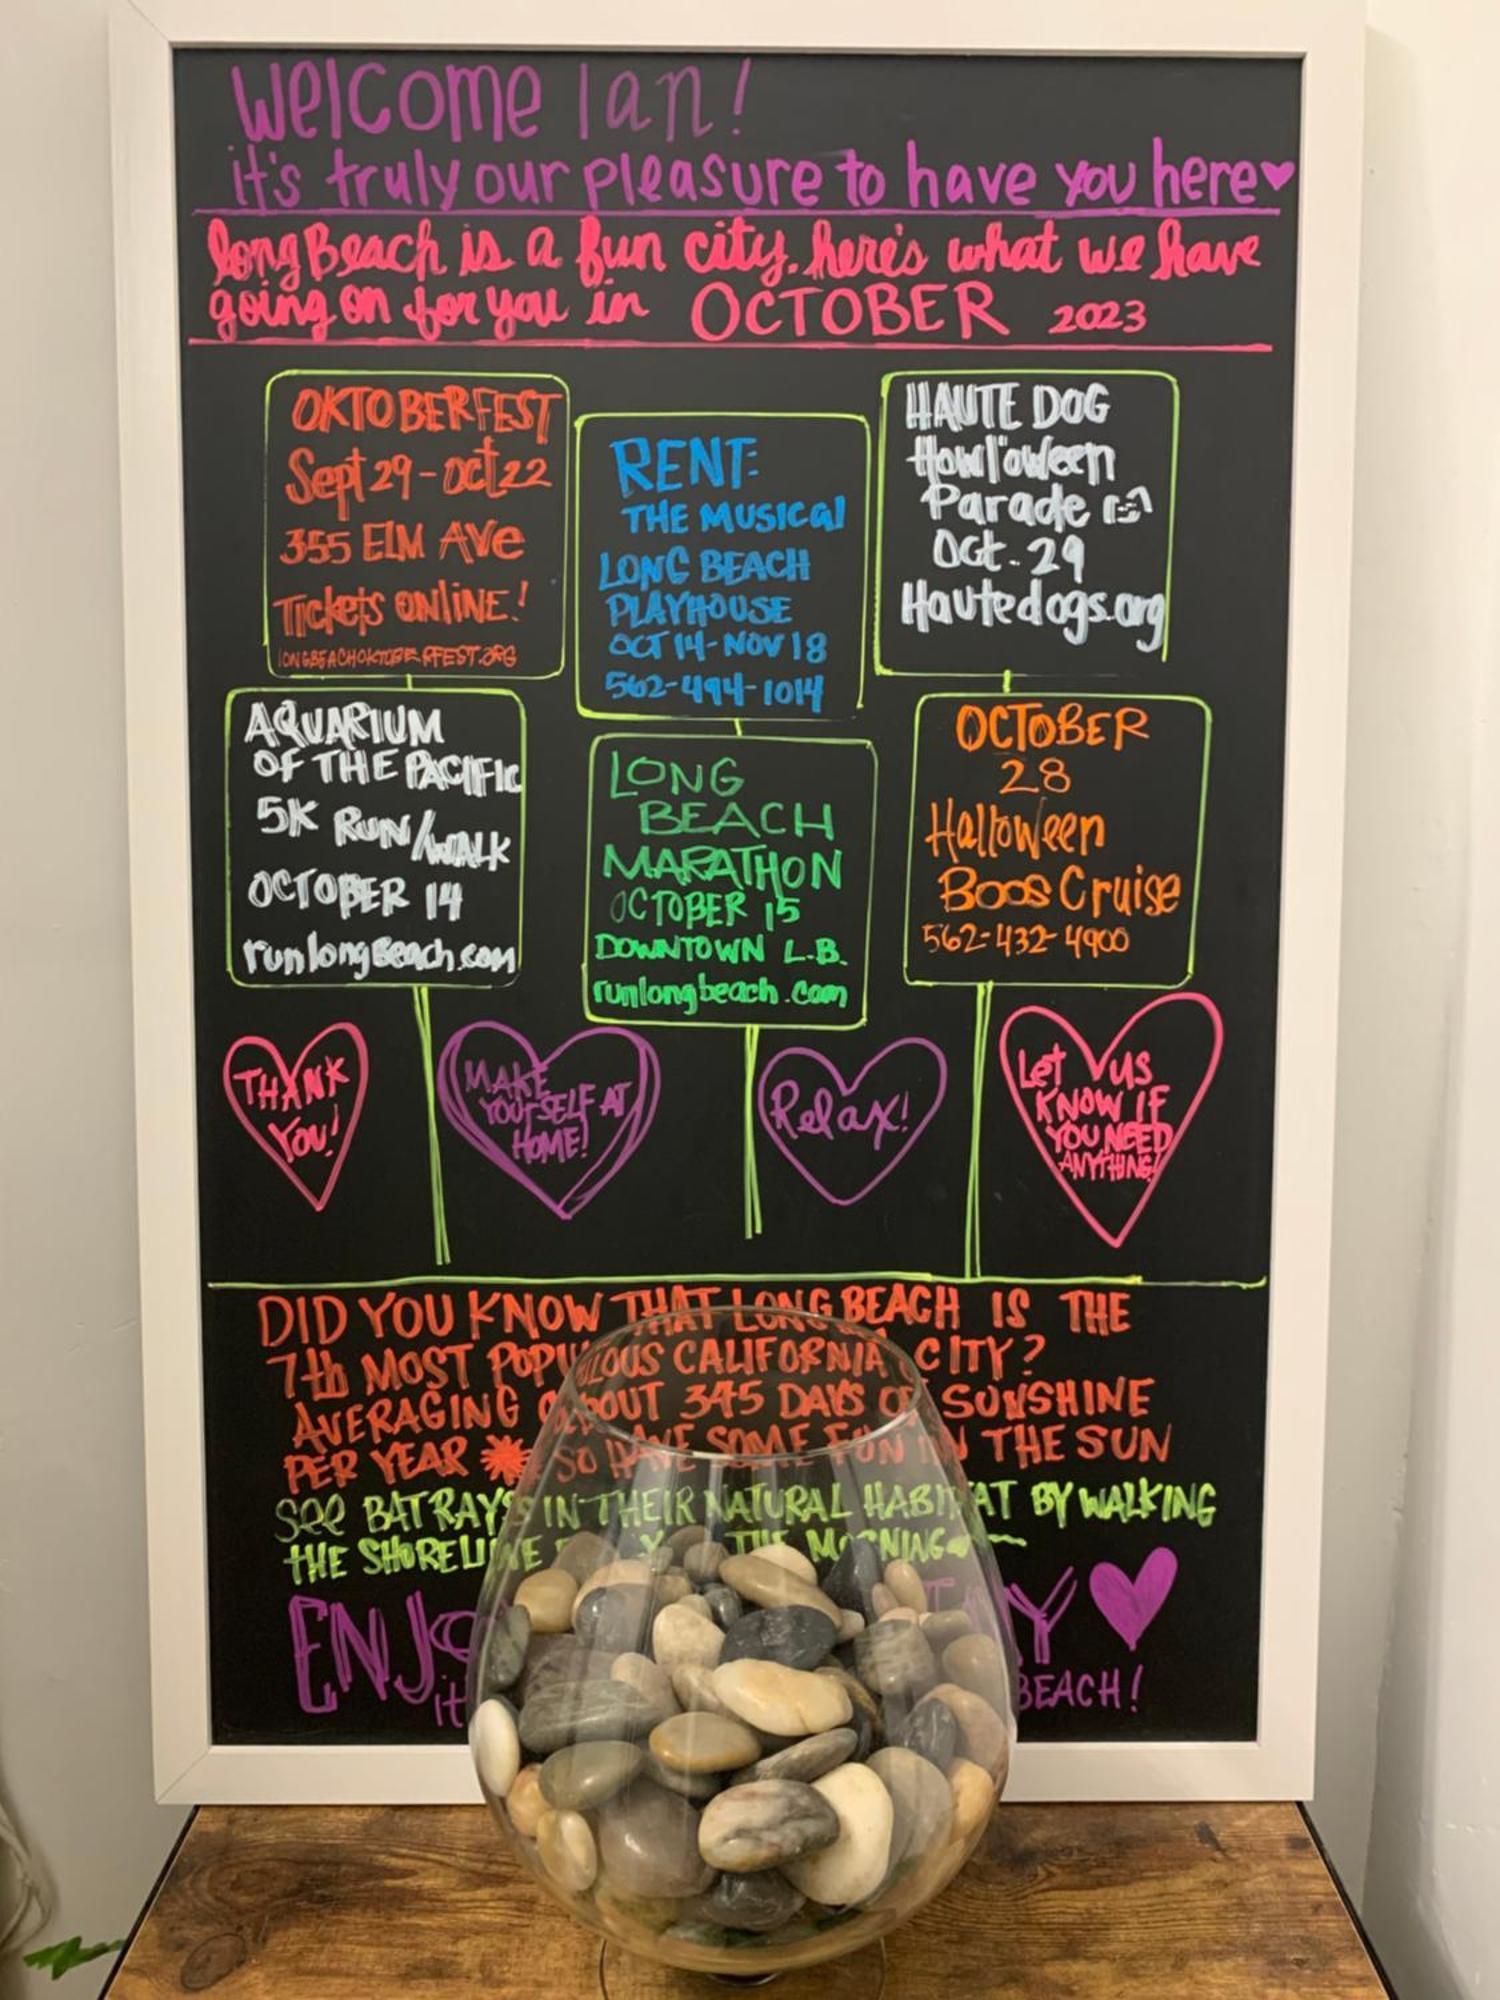 Welcome Ian!
it's truly our pleasure to have you here
Long Beach is a fun city. here's what we have
going on for you in OCTOBER 2023
OKTOBERFEST
Sept 29 - Oct 22
355 ELM AVE
Tickets ONLINE!
LONGBEACHOKTOBERFEST.ORG
RENT:
THE MUSICAL
LONG BEACH
PLAYHOUSE
OCT 14 - NOV 18
562-494-1014
HAUTE DOG
Howl'oween
Parade
Oct. 29
Hautedogs.org
AQUARIUM
OF THE PACIFIC
5K RUN/WALK
OCTOBER 14
runlongBeach.com
LONG
BEACH
MARATHON
OCTOBER 15
DOWNTOWN L.B.
runlongbeach.com
OCTOBER
28
Halloween
Boos Cruise
562-432-4900
THANK
YOU!
MAKE
YOURSELF AT
HOME!
Relax!
Let us
KNOW IF
YOU NEED
ANYTHING!
DID YOU KNOW THAT LONG BEACH IS THE
7th MOST POPULOUS CALIFORNIA CITY?
AVERAGING ABOUT 345 DAYS OF SUNSHINE
PER YEAR SO HAVE SOME FUN IN THE SUN
See BAT RAYS IN THEIR NATURAL HABITAT BY WALKING
THE SHORELINE THE MORNING
BEACH!